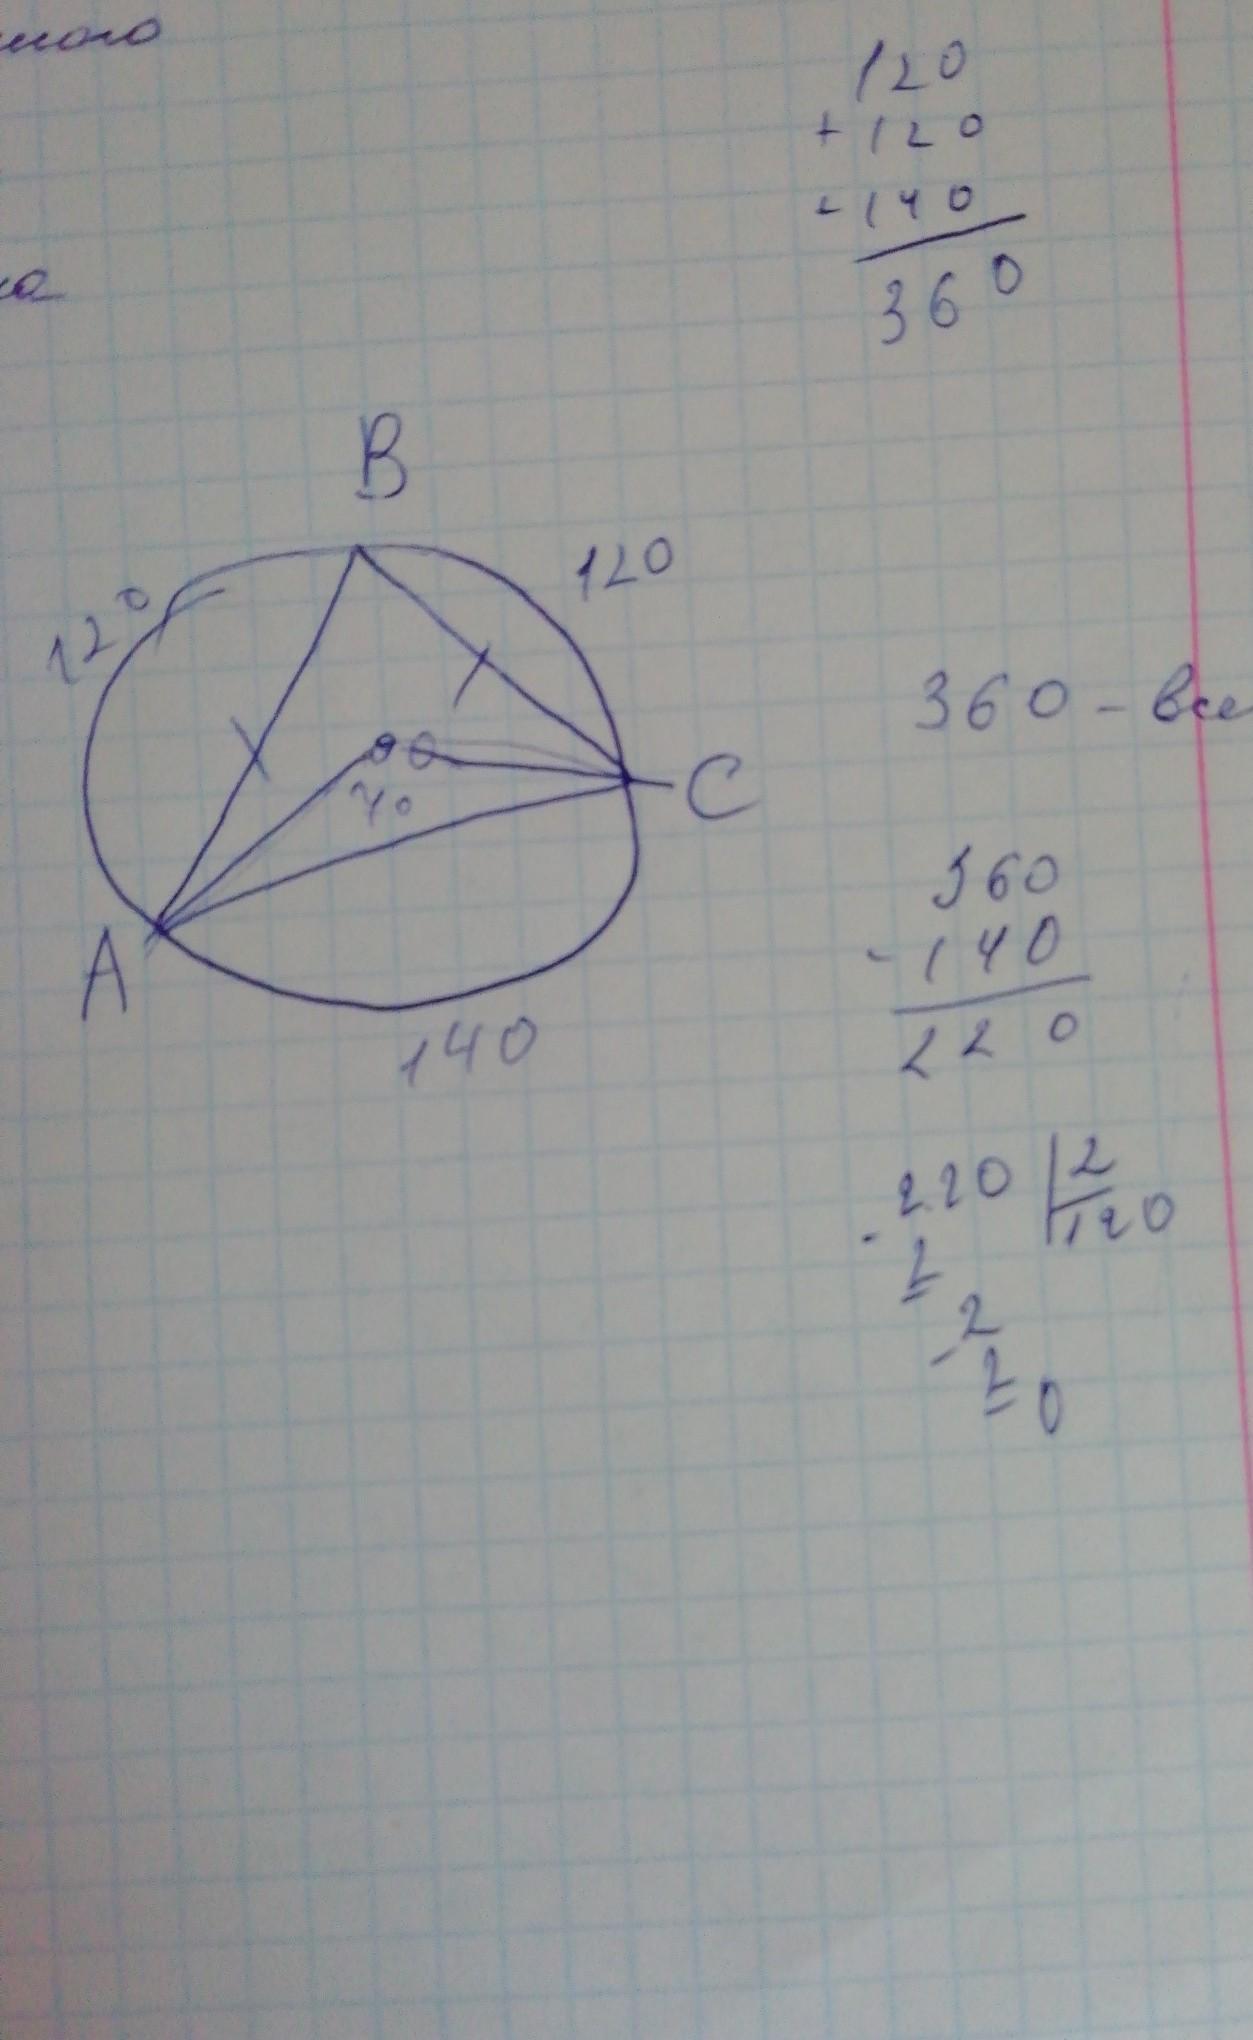 120
+120
+140
360
B
120
120
360 - все
O
70
C
360
-140
220
A
140
220 2
- 120
2
-2
2
0